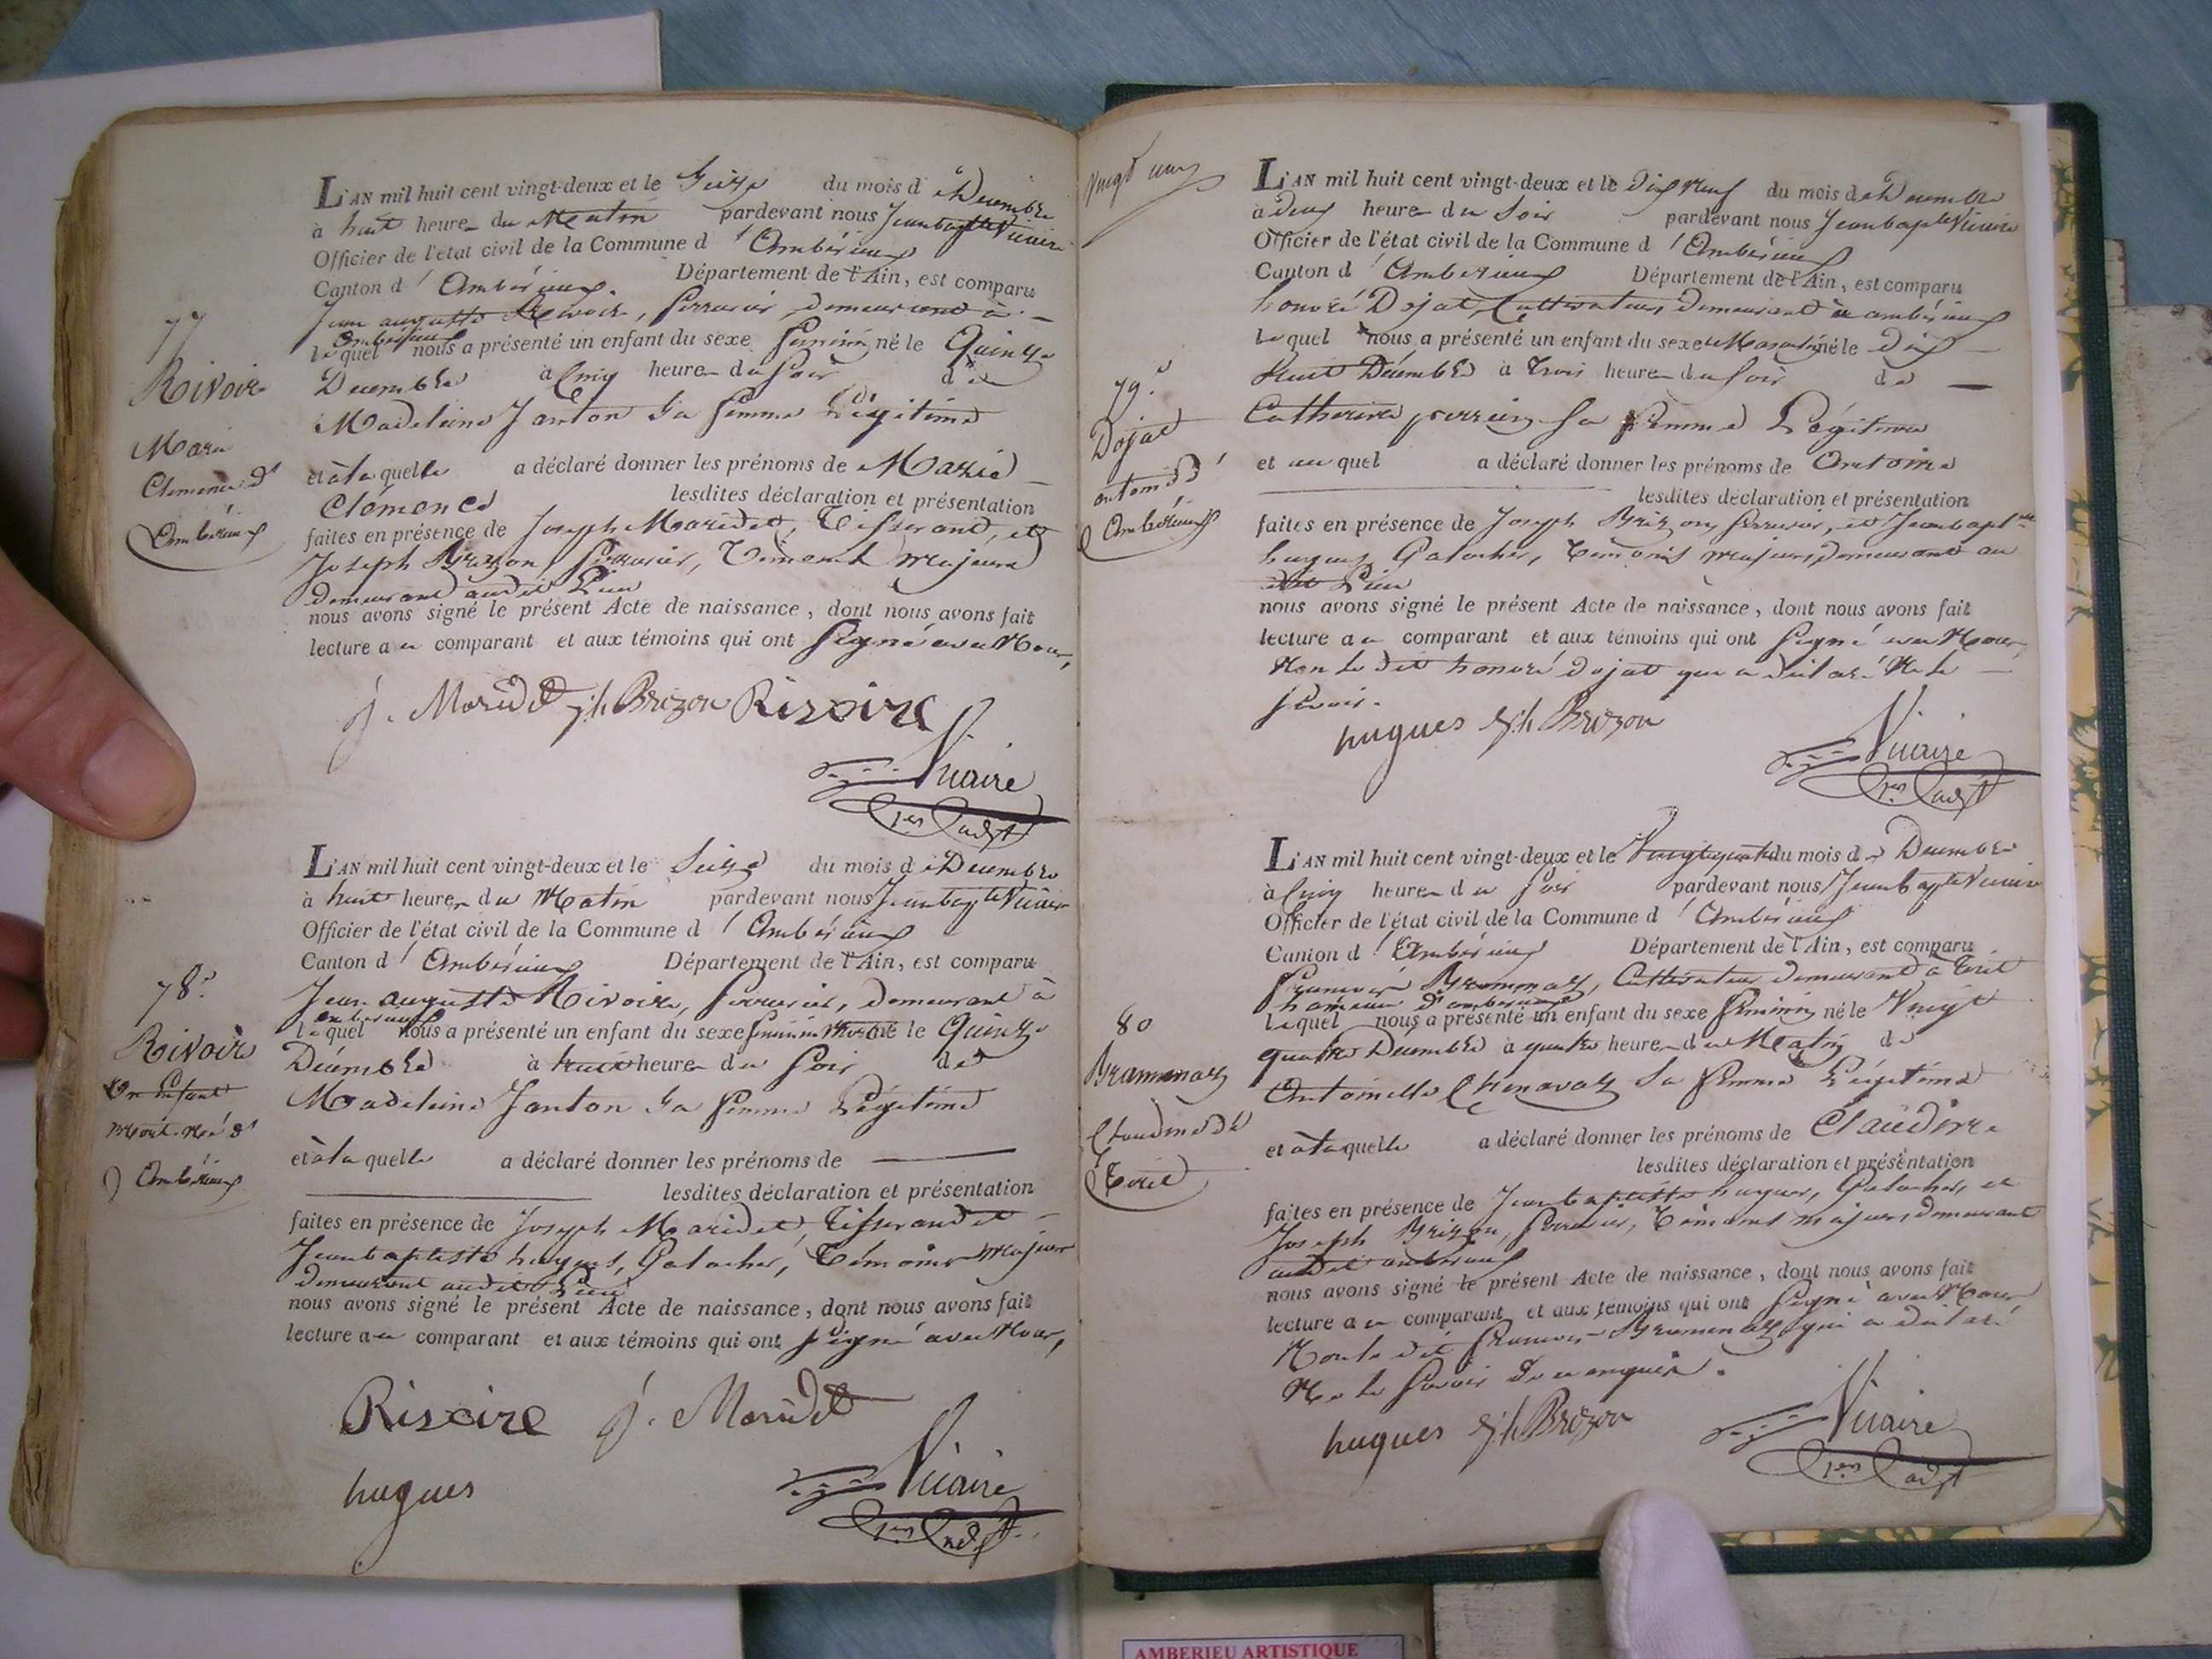 L'AN mil huit cent vingt-deux et le Seize du mois de Decembre
à huit heures du Matin pardevant nous Jean baptte Vicaire
Officier de l'état civil de la Commune d'Ambérieux
Canton d'Ambérieux. Département de l'Ain, est comparu
Jean auguste Rivoire, serrurier, demeurant à
ambérieux
lequel nous a présenté un enfant du sexe féminin né le Quinze
Decembre à Cinq heures du soir de
Madeleine Janton Sa femme Légitime
et à laquelle a déclaré donner les prénoms de Marie
Clémence lesdites déclaration et présentation
faites en présence de Joseph Maridet, Tisserand, et
Joseph Brizon, serrurier, Témoins majeurs
demeurant audit Lieu
nous avons signé le présent Acte de naissance, dont nous avons fait
lecture au comparant et aux témoins qui ont signé avec Nous,
j. Maridet jh Brizon Rivoire
Vicaire
1er adjt
77
Rivoire
Marie
Clemence d'
Ambérieux
L'AN mil huit cent vingt-deux et le Seize du mois de Decembre
à huit heures du Matin pardevant nous Jean baptte Vicaire
Officier de l'état civil de la Commune d'Ambérieux
Canton d'Ambérieux Département de l'Ain, est comparu
Jean auguste Rivoire, serrurier, demeurant à
amberieux
lequel nous a présenté un enfant du sexe féminin Mort né le Quinze
Décembre à huit heures du soir de
Madeleine Janton Sa femme Légitime
et à laquelle a déclaré donner les prénoms de
lesdites déclaration et présentation
faites en présence de Joseph Maridet, Tisserand et
Jean baptiste hugues, Galocher, Témoins majeurs
demeurant audit Lieu
nous avons signé le présent Acte de naissance, dont nous avons fait
lecture au comparant et aux témoins qui ont signé avec Nous,
Rivoire j. Maridet
hugues Vicaire
1er adjt
78.
Rivoire
Un Enfant
Mort-Né d'
Ambérieux
vingt un
L'AN mil huit cent vingt-deux et le Dix Neuf du mois de Decembre
à deux heures du Soir pardevant nous Jean baptte Vicaire
Officier de l'état civil de la Commune d'Ambérieux
Canton d'Ambérieux Département de l'Ain, est comparu
honoré Dojat, Cultivateur demeurant à ambérieux
lequel nous a présenté un enfant du sexe Masculin né le Dix
Huit Décembre à Trois heures du soir de
Catherine perrin Sa femme Légitime
et auquel a déclaré donner les prénoms de Antoine
lesdites déclaration et présentation
faites en présence de Joseph Brizon, serrurier, et Jean baptiste
hugues Galocher, Temoins majeurs, demeurant au
dit Lieu
nous avons signé le présent Acte de naissance, dont nous avons fait
lecture au comparant et aux témoins qui ont signé avec Nous,
Non le dit honoré dojat qui a déclaré Ne le
savoir.
hugues jh Brizon
Vicaire
1er adjt
79.
Dojat
antoine d'
Ambérieux
L'AN mil huit cent vingt-deux et le Vingt quatre du mois de Decembre
à Cinq heures du Soir pardevant nous Jean baptte Vicaire
Officier de l'état civil de la Commune d'Ambérieux
Canton d'Ambérieux Département de l'Ain, est comparu
François Brammaz, Cultivateur demeurant à Toriet
hameau d'amberieux
lequel nous a présenté un enfant du sexe féminin né le Vingt
quatre Decembre à quatre heures du Matin de
Antoinette Chenavaz Sa femme Légitime
et à laquelle a déclaré donner les prénoms de Claudine
lesdites déclaration et présentation
faites en présence de Jean baptiste hugues, Galocher, et
Joseph Brizon, serrurier, Témoins majeurs, demeurant
audit amberieux
nous avons signé le présent Acte de naissance, dont nous avons fait
lecture au comparant et aux témoins qui ont signé avec Nous
Non le dit François Brammaz qui a déclaré
Ne le savoir
hugues jh Brizon
Vicaire
1er adjt
80
Brammaz
Claudine de
Toriet
AMBERIEU ARTISTIQUE